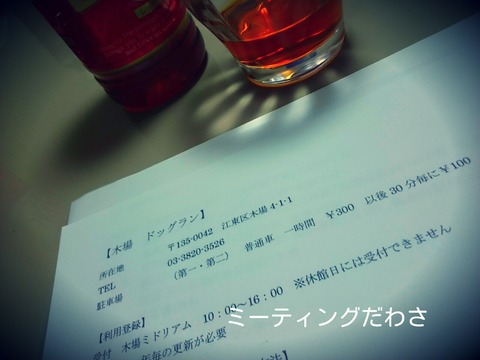 【木場　ドッグラン】
所在地　〒135-0042　江東区木場4-1-1
TEL　03-3820-3526
駐車場　（第一・第二）　普通車　一時間　￥300　以後30分毎に￥100
【利用登録】
受付　木場ミドリアム　10：00～16：00　※休館日には受付できません
年毎の更新が必要
ミーティングだわさ